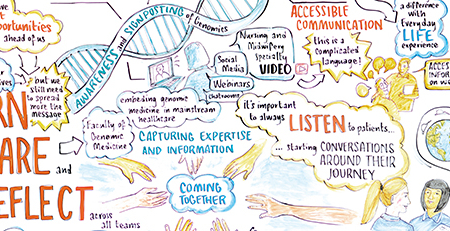 opportunities
ahead of us
but we
still need
to spread
more the
message
AWARENESS and SIGNPOSTING of Genomics
Social
Media
Webinars
chatrooms
Nursing and
Midwifery
Specialty
VIDEO
ACCESSIBLE
COMMUNICATION
this is a
complicated
language!
a difference
with
Everyday
LIFE
experience
embeding genome
medicine in mainstream
healthcare
Faculty of
Genomic
Medicine
CAPTURING EXPERTISE
AND INFORMATION
it's important
to always
LISTEN to patients...
... starting CONVERSATIONS
AROUND THEIR
JOURNEY
COMING
TOGETHER
and
across
all teams